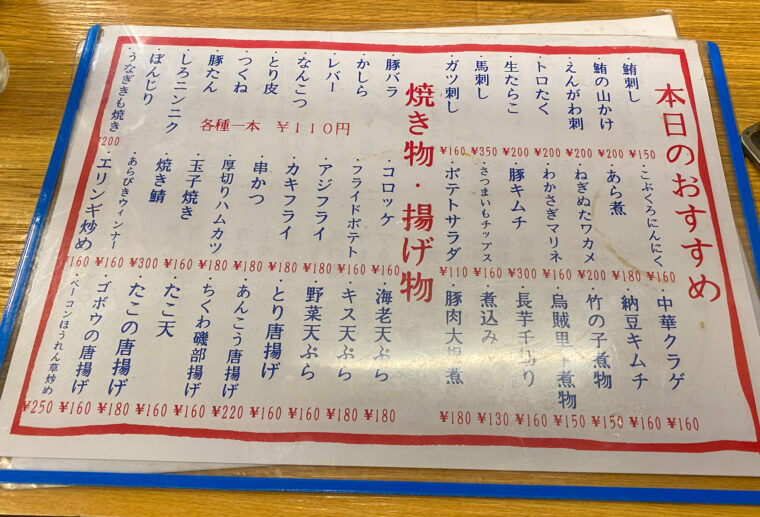 本日のおすすめ
・鮪刺し ¥150
・鮪の山かけ ¥200
・えんがわ刺 ¥200
・トロたく ¥200
・生たらこ ¥200
・馬刺し ¥350
・ガツ刺し ¥160
・こぶくろにんにく ¥160
・あら煮 ¥180
・ねぎぬたワカメ ¥200
・わかさぎマリネ ¥160
・豚キムチ ¥300
・さつまいもチップス ¥160
・ポテトサラダ ¥110
・中華クラゲ ¥160
・納豆キムチ ¥160
・竹の子煮物 ¥150
・烏賊里芋煮物 ¥150
・長芋千切り ¥160
・煮込み ¥130
・豚肉大根煮 ¥180
焼き物・揚げ物
・豚バラ
・かしら
・レバー
・なんこつ
・とり皮
・つくね
・豚たん
・しろニンニク
・ぼんじり
・うなぎきも焼き ¥200
各種一本 ¥110円
・コロッケ ¥160
・フライドポテト ¥160
・アジフライ ¥180
・カキフライ ¥180
・串かつ ¥180
・厚切りハムカツ ¥180
・玉子焼き ¥160
・焼き鯖 ¥300
・あらびきウィンナー ¥160
・エリンギ炒め ¥160
・海老天ぷら ¥180
・キス天ぷら ¥180
・野菜天ぷら ¥160
・とり唐揚げ ¥160
・あんこう唐揚げ ¥220
・ちくわ磯部揚げ ¥160
・たこ天 ¥160
・たこの唐揚げ ¥180
・ゴボウの唐揚げ ¥160
・ベーコンほうれん草炒め ¥250